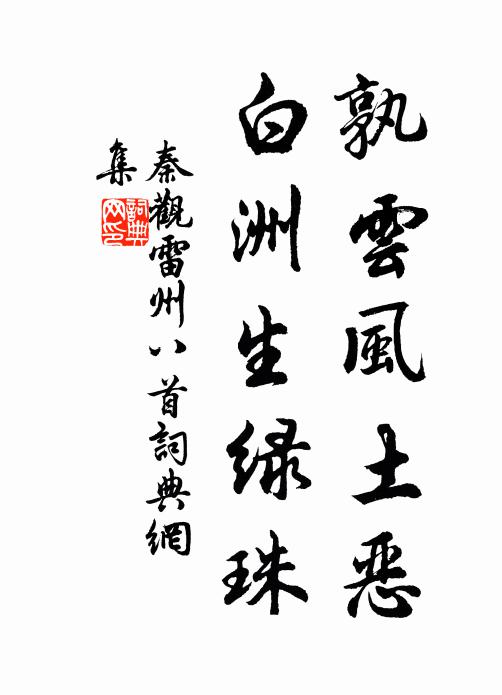 孰雲風土惡
白洲生綠珠
秦觀雷州八首詞典網
集
詞典
网